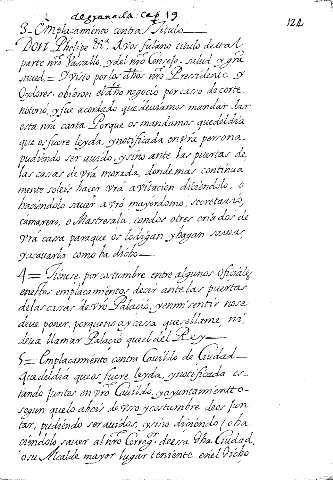 de granada. Cap. 19
122
3 - Emplacamiento contra Titulo
Don Phelipe &c. A vos fulano titulo de tal
parte nro Vasallo, y del nro Consejo, salud y gra
sepades = Visto por los dhos nros Presidente y
Oydores obieron el dho negocio por caso de corte
notorio, y fue acordado que deuiamos mandar dar
esta nra carta. Porque os mandamos que del dia
que os fuere leyda, y notificada en vra persona
pudiendo ser auido, y sino ante las puertas de
las casas de vra morada, donde mas continua
mente soleis hacer vra avitacion diciendolo, o
haciendolo sauer a vro mayordomo, secretario,
camarero, o Mastresala, con dos otros criados de
vra casa para que os lo digan y hagan sauer
y a vuestra como ha dicho
4 = Tienese por costumbre entre algunos oficiales
en estos emplacamientos decir ante las puertas
de las casas de vro Palacio, y en mi sentir no se
deue poner, porque no ay casa que se llame, ni
deua llamar Palacio que el del Rey
5 = Emplacamiento contra Cauildo de Ciudad
que del dia que os fuere leyda, y notificada es
tando juntos en vro Cauildo, y ayuntamiento
segun que lo abeis de vso y costumbre de os jun
tar, pudiendo ser auidos, y sino diciendolo, o ha
ciendolo sauer al nro Corregr. de esa dha Ciudad,
o su Alcalde mayor lugar teniente en el dicho